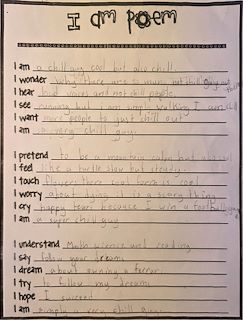 I am poem
I am a chill guy cool but also chill
I wonder why there are so many not chill guys out there
I hear loud noises and not chill people
I see running but I am simply walking I am chill
I want more people to just chill out
I am a very chill guy
I pretend to be a mountain calm but
I feel like a turtle slow but steady
I touch flowers there is cool
I worry about dying it is a scary thing
I cry happy tears because I win a football game
I am a super chill guy
I understand Math science and reading
I say follow your dreams
I dream about owning a ferrari
I try to follow my dreams
I hope I succeed
I am simply a very chill guy